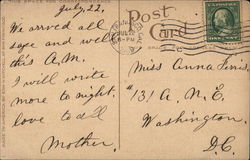 July 22,
Post
Card
We arrived all
safe and well
this A.M.
I will write
more to night.
love to all
Mother.
Miss Anna
#131 A. N.E.
Washington
D.C.